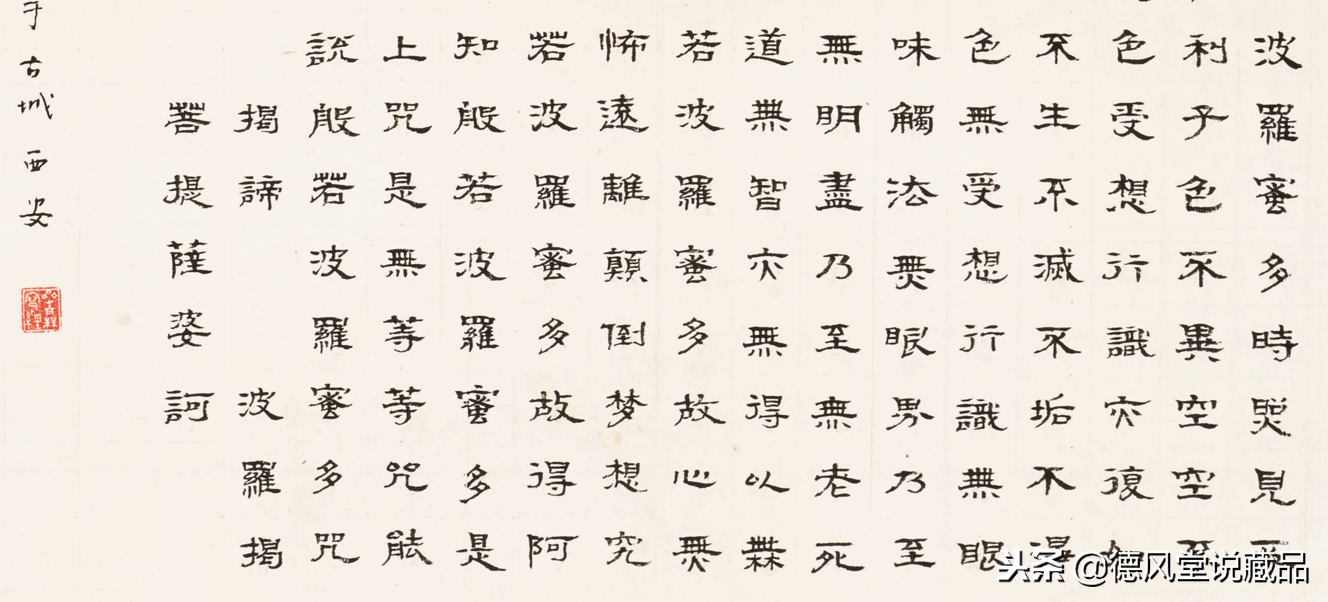 波羅蜜多時照見五
利子色不異空空不
色受想行識亦復如
不生不滅不垢不淨
色無受想行識無眼
味觸法無眼界乃至
無明盡乃至無老死
道無智亦無得以無
若波羅蜜多故心無
怖遠離顛倒梦想究
若波羅蜜多故得阿
知般若波羅蜜多是
上咒是無等等咒能
說般若波羅蜜多咒
揭諦 波羅揭
菩提薩婆訶
于古城西安
头条 @德风堂说藏品